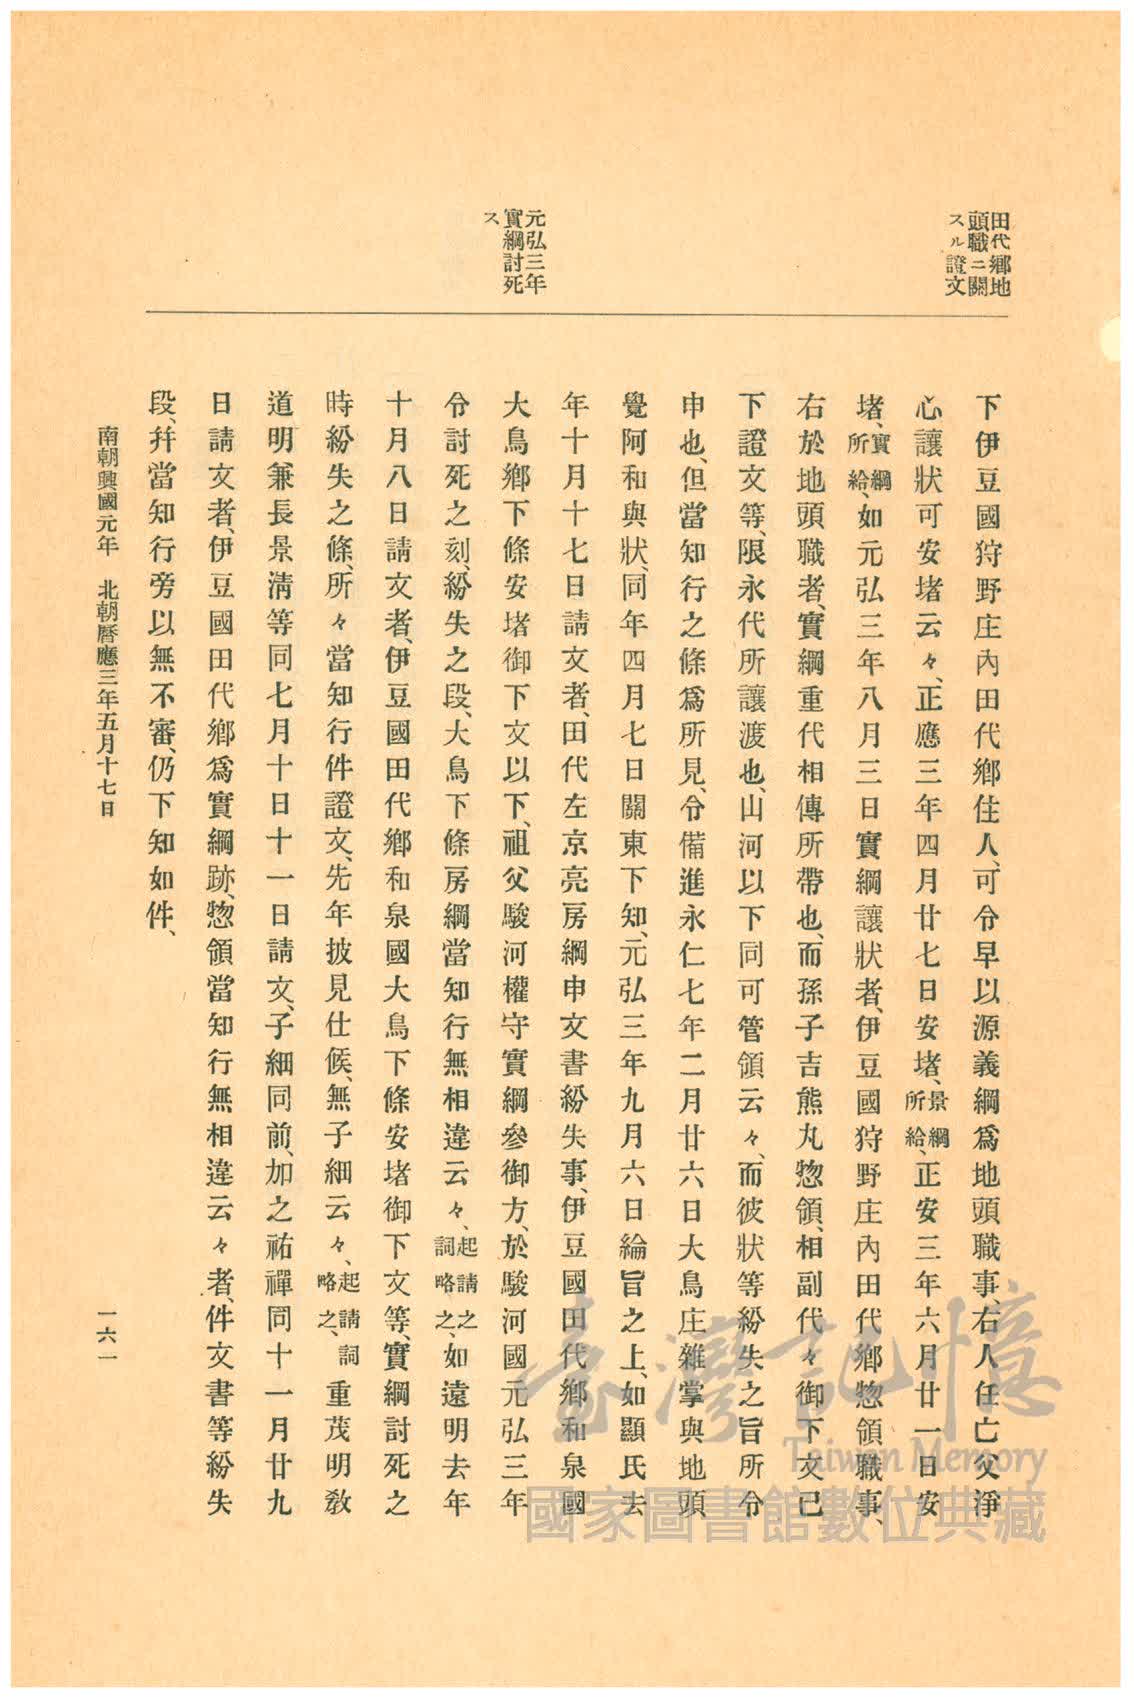 田代鄕地
頭職ニ關
スル證文
元弘三年
實綱討死
ス
下伊豆國狩野庄內田代鄕住人、可令早以源義綱爲地頭職事、右人任亡父淨
心讓狀可安堵云々、正應三年四月廿七日安堵、景綱所給、正安三年六月廿一日安
堵、實綱所給、如元弘三年八月三日實綱讓狀者、伊豆國狩野庄內田代鄕惣領職事、
右於地頭職者、實綱重代相傳所帶也、而孫子吉熊丸惣領、相副代々御下文已
下證文等、限永代所讓渡也、山河以下同可管領云々、而彼狀等紛失之旨所令
申也、但當知行之條爲所見、令備進永仁七年二月廿六日大鳥庄雜掌與地頭
覺阿和與狀、同年四月七日關東下知、元弘三年九月六日綸旨之上、如顯氏去
年十月十七日請文者、田代左京亮房綱申文書紛失事、伊豆國田代鄕和泉國
大鳥鄕下條安堵御下文以下、祖父駿河權守實綱參御方、於駿河國元弘三年
令討死之刻、紛失之段、大鳥下條房綱當知行無相違云々、起請之詞略之、如遠明去年
十月八日請文者、伊豆國田代鄕和泉國大鳥下條安堵御下文等、實綱討死之
時紛失之條、所々當知行件證文、先年披見仕候、無子細云々、起請詞略之、重茂明敎
道明兼長景淸等同七月十日十一日請文、子細同前、加之祐禪同十一月廿九
日請文者、伊豆國田代鄕爲實綱跡、惣領當知行無相違云々者、件文書等紛失
段、幷當知行旁以無不審、仍下知如件、
南朝興國元年　北朝曆應三年五月十七日
一六一
臺灣記憶
Taiwan Memory
國家圖書館數位典藏